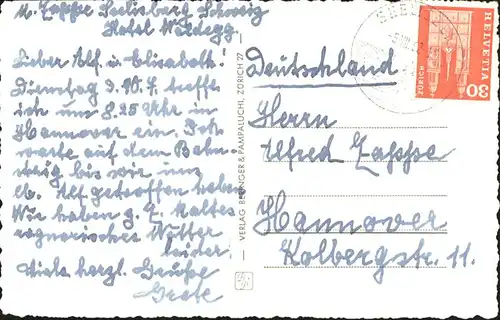 M. Zappe Seelisberg Schweiz
Hotel Waldegg.
Lieber Alf. u. Elisabeth!
Dienstag d. 10. 7. treffe
ich um 8.25 Uhr in
Hannover ein. Ich
warte auf dem Bahn-
steig bis wir uns
lb. Alf getroffen haben.
Wir haben z. Z. kaltes
regnerisches Wetter
leider.
Viele herzl. Grüße
Grete
VERLAG BERINGER & PAMPALUCHI, ZÜRICH 27
Deutschland
Herrn
Alfred Zappe
Hannover
Kolbergstr. 11.
HELVETIA
ZÜRICH
30